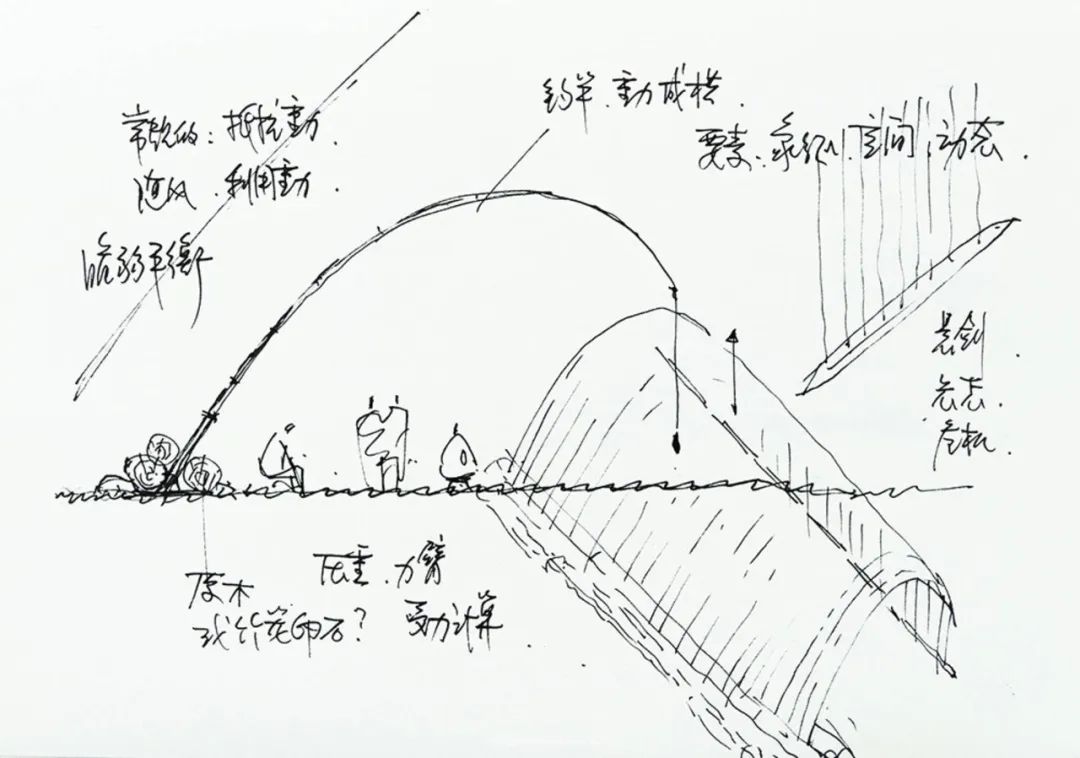 常规的：抵抗動．
随风．利用動．
脆弱平衡
钓竿．動成拱．
要素：系织．空间．动态．
悬剑．
态．
危机．
原木
或竹笼卵石？
压重．力臂
受力计算．